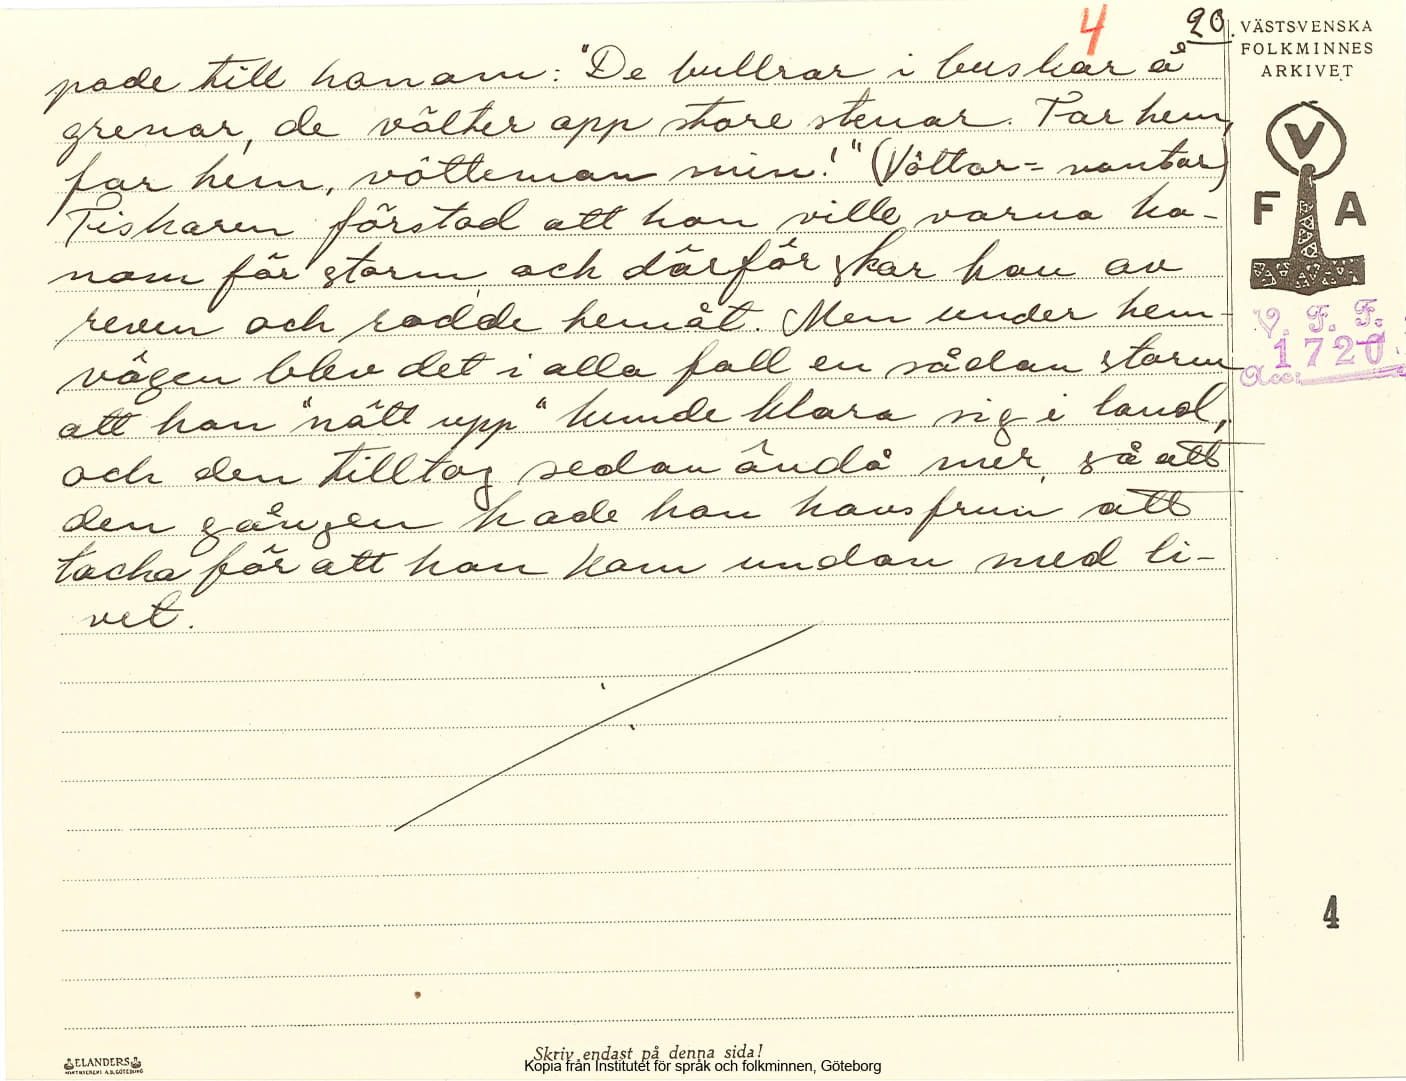 4
20.
VÄSTSVENSKA
FOLKMINNES
ARKIVET
pade till honom: "De bullrar i buskar å
grenar, de välter opp store stenar. Far hem,
far hem, vötteman min!" (Vöttar = vantar)
Fiskaren förstod att hon ville varna ho-
nom för storm och därför skar han av
reven och rodde hemåt. Men under hem-
vägen blev det i alla fall en sådan storm
att han "nätt upp" kunde klara sig i land,
och den tilltog sedan ändå mer, så att
den gången hade han havsfrun att
tacka för att han kom undan med li-
vet.
V
F A
V. F. F.
1720
Acc:
4
ELANDERS
Skriv endast på denna sida!
Kopia från Institutet för språk och folkminnen, Göteborg